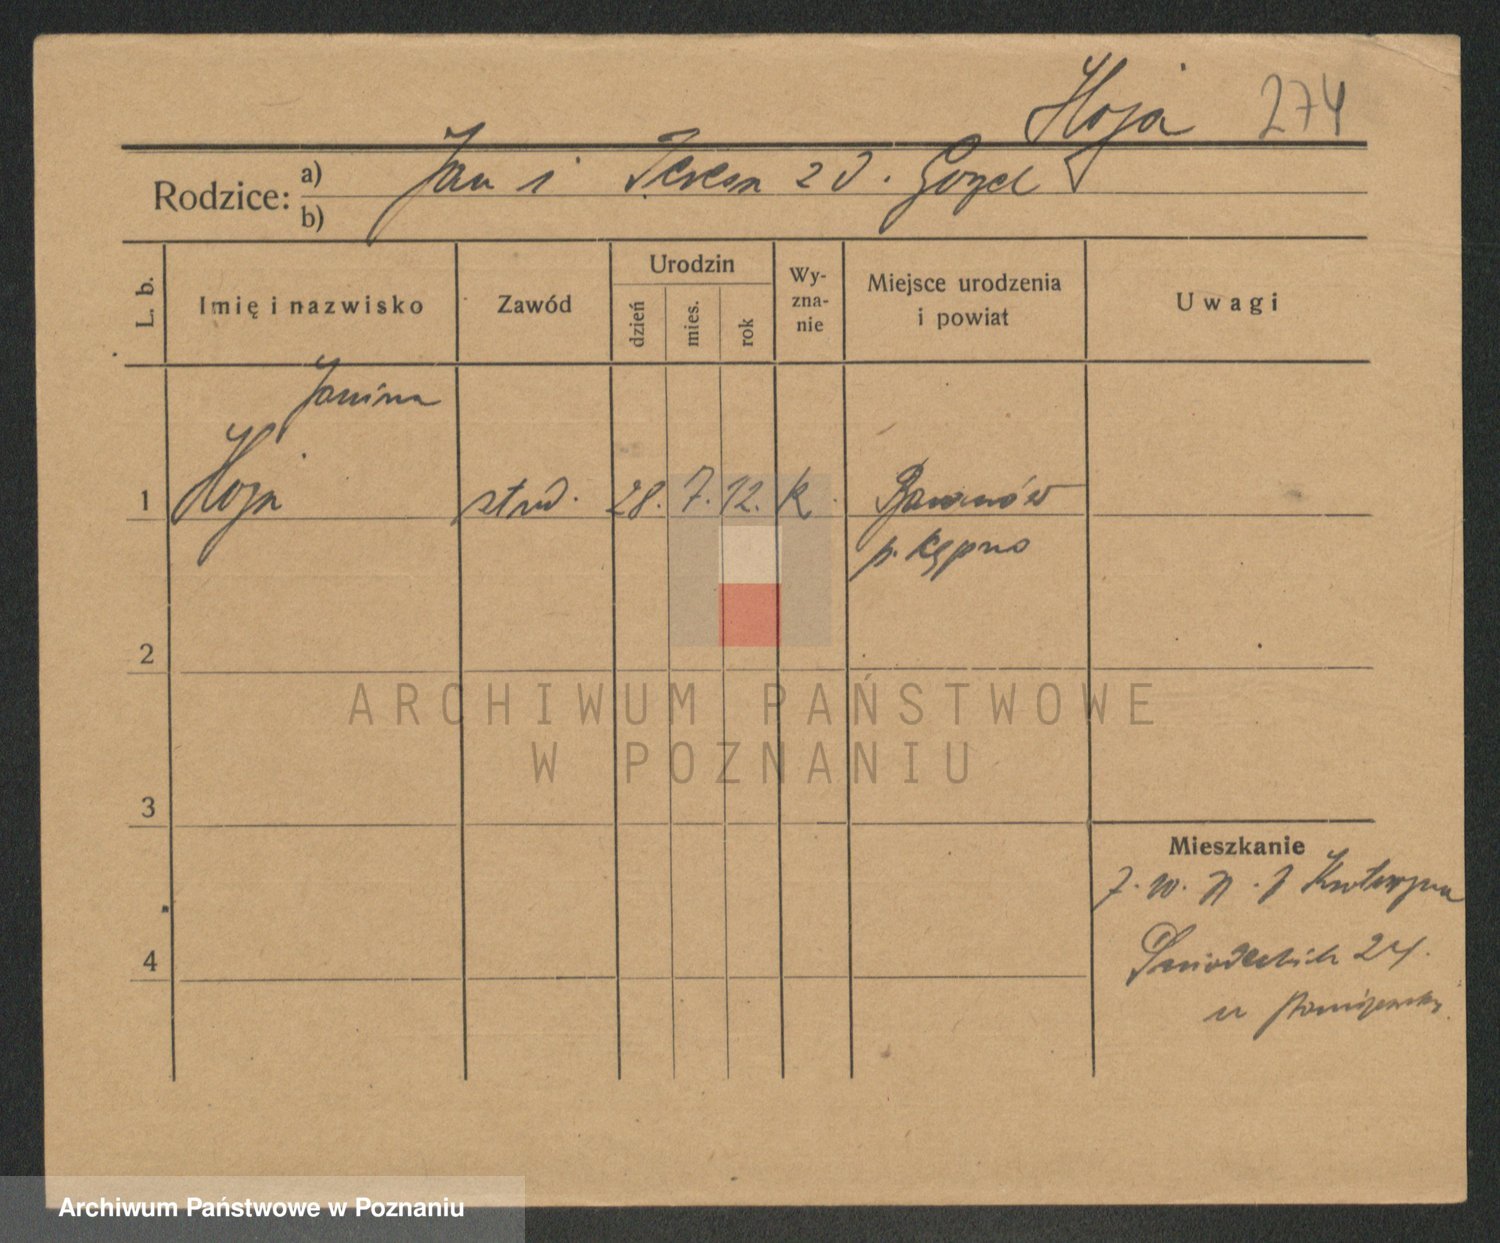 Hoja 274
Rodzice: a) Jan i Teresa z d.
b)
L. b.
Imię i nazwisko
Zawód
Urodzin
dzień
mies.
rok
Wy-
zna-
nie
Miejsce urodzenia
i powiat
Uwagi
Janina
1 Hoja stud. 28. 7. 12. k. Baranów
p. Kępno
2
ARCHIWUM PAŃSTWOWE
W POZNANIU
3
Mieszkanie
Śniadeckich 24.
4
u
Archiwum Państwowe w Poznaniu